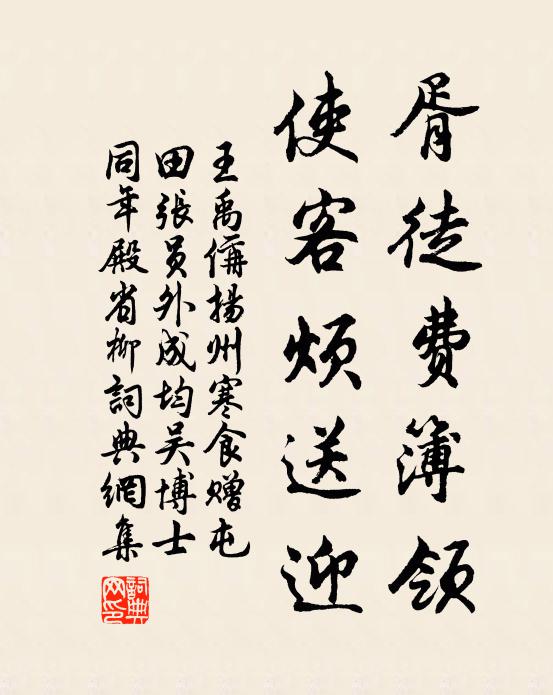 胥徒费簿领
使客烦送迎
王禹偁揚州寒食赠屯
田張员外成均吴博士
同年殿省柳詞典網集
詞典